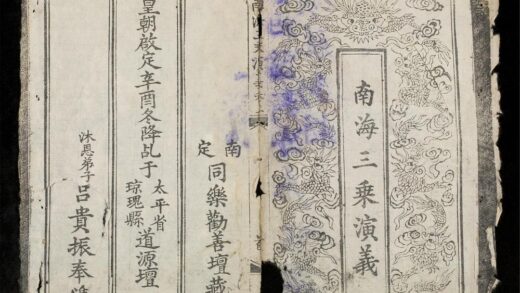 南海三乘演義
南定
同樂勸善壇藏
皇朝啟定辛酉冬降乩于
太平省
瓊瑰縣
道源壇
沐恩弟子
呂貴振奉